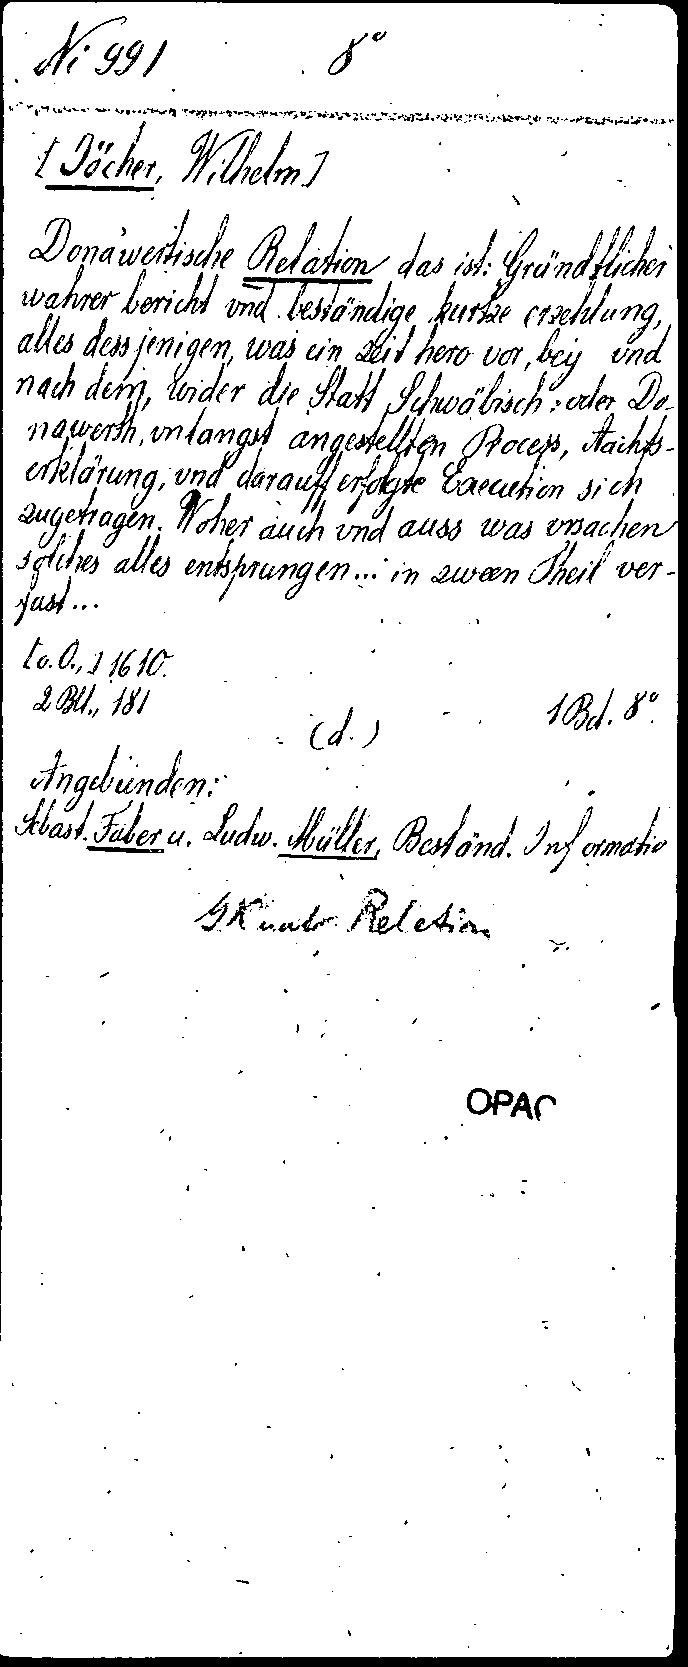 Ni 991 8°
[Jöcher, Wilhelm]
Donawertische Relation das ist: Gründtlicher
wahrer bericht vnd beständige kurtze erzehlung,
alles dessjenigen, was ein Zeit hero vor, bey vnd
nach dem, wider die Statt Schwäbisch: oder Do-
nawerth, vnlangst angestellten Process, Aachts-
erklärung, vnd darauff erfolgte Execution sich
zugetragen. Woher auch vnd auss was vrsachen
solches alles entsprungen... in zween Theil ver-
fast...
[o.O.,] 1610.
2 Bll., 181 1 Bd. 8°.
(d.)
Angebunden:
Sebast. Faber u. Ludw. Müller, Beständ. Informatio
Relation
OPAC